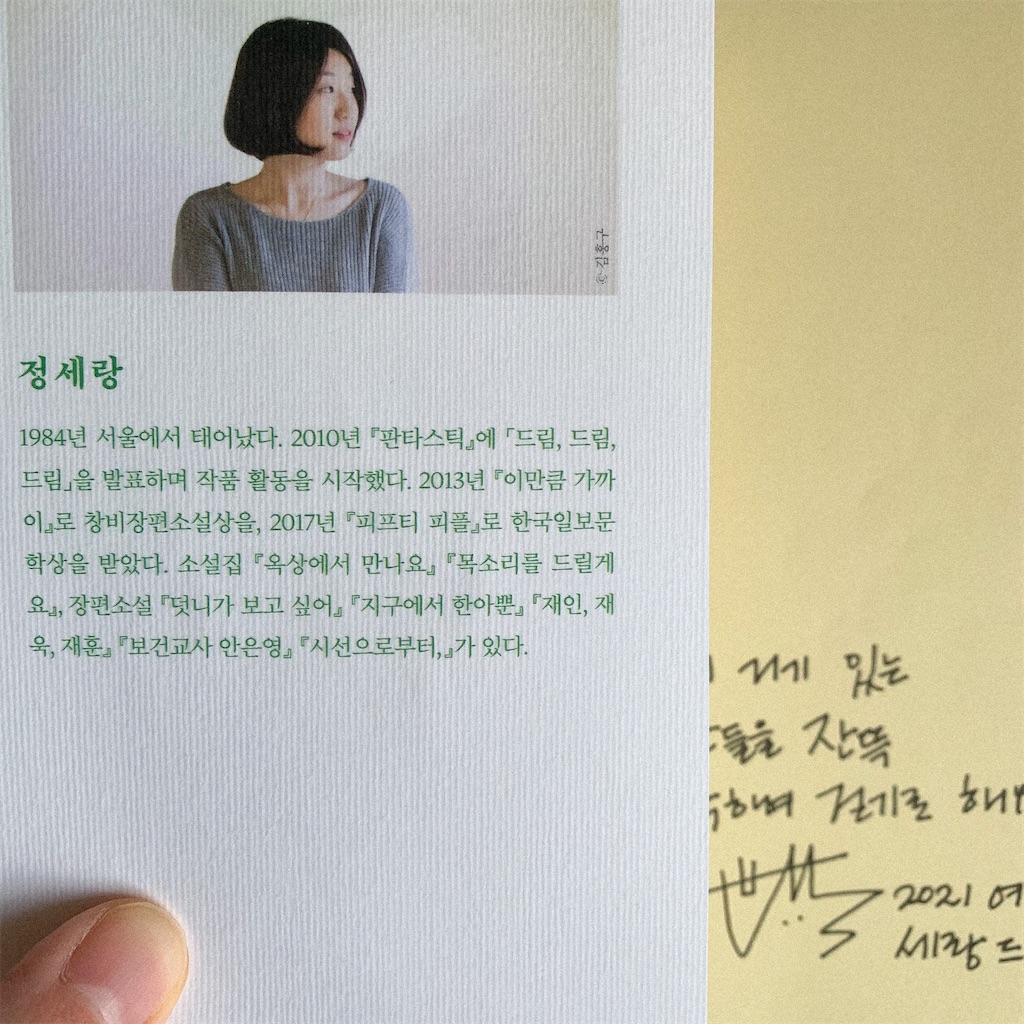 © 김흥구
정세랑
1984년 서울에서 태어났다. 2010년 『판타스틱』에 「드림, 드림,
드림」을 발표하며 작품 활동을 시작했다. 2013년 『이만큼 가까
이』로 창비장편소설상을, 2017년 『피프티 피플』로 한국일보문
학상을 받았다. 소설집 『옥상에서 만나요』 『목소리를 드릴게
요』, 장편소설 『덧니가 보고 싶어』 『지구에서 한아뿐』 『재인, 재
욱, 재훈』 『보건교사 안은영』 『시선으로부터,』가 있다.
거기 있는
들을 잔뜩
하며 걷기로 해
2021 여
세랑 드